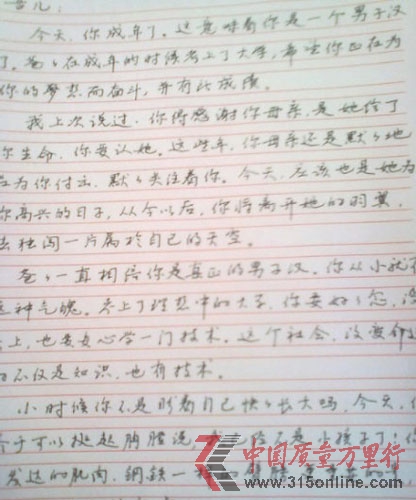 儿：
今天，你成年了。这意味着你是一个男子汉
了。爸爸在成年的时候考上了大学，希望你正在为
你的梦想而奋斗，并有此成绩。
我上次说过，你得感谢你母亲，是她给了
你生命，你要认她。这些年，你母亲还是默默地
在为你付出，默默关注着你。今天，应该也是她为
你高兴的日子，从今以后，你将离开她的羽翼，
去独闯一片属於自己的天空。
爸爸一直相信你是真正的男子汉。你从小就有
这种气魄。考上了理想中的大学，你要好好念，没
上，也要安心学一门技术。这个社会，改变命运
的不仅是知识，也有技术。
小时候你不是盼着自己快快长大吗，今天，你
终于可以挺起胸膛说，我已经不是小孩子了，你
发达的肌肉，钢铁一
中国质量万里行
www.315online.com